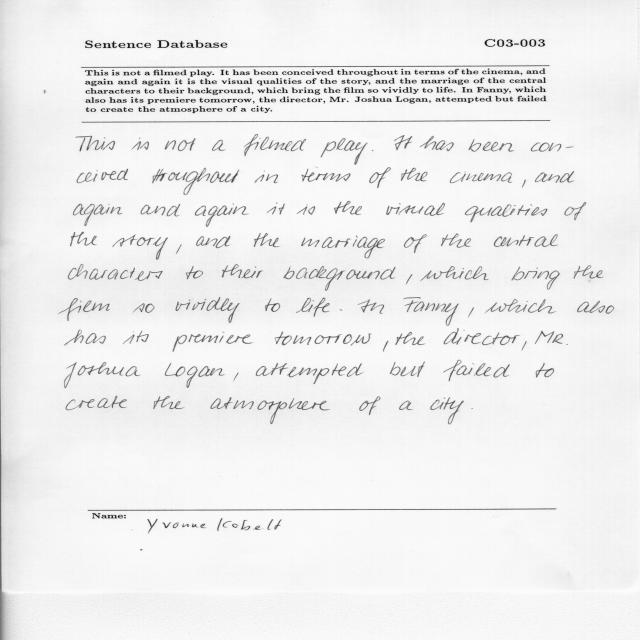 Sentence Database C03-003
This is not a filmed play. It has been conceived throughout in terms of the cinema, and
again and again it is the visual qualities of the story, and the marriage of the central
characters to their background, which bring the film so vividly to life. In Fanny, which
also has its premiere tomorrow, the director, Mr. Joshua Logan, attempted but failed
to create the atmosphere of a city.
This is not a filmed play. It has been con-
ceived throughout in terms of the cinema, and
again and again it is the visual qualities of
the story, and the marriage of the central
characters to their background, which bring the
film so vividly to life. In Fanny, which also
has its premiere tomorrow, the director, Mr.
Joshua Logan, attempted but failed to
create the atmosphere of a city.
Name: Yvonne Kobelt